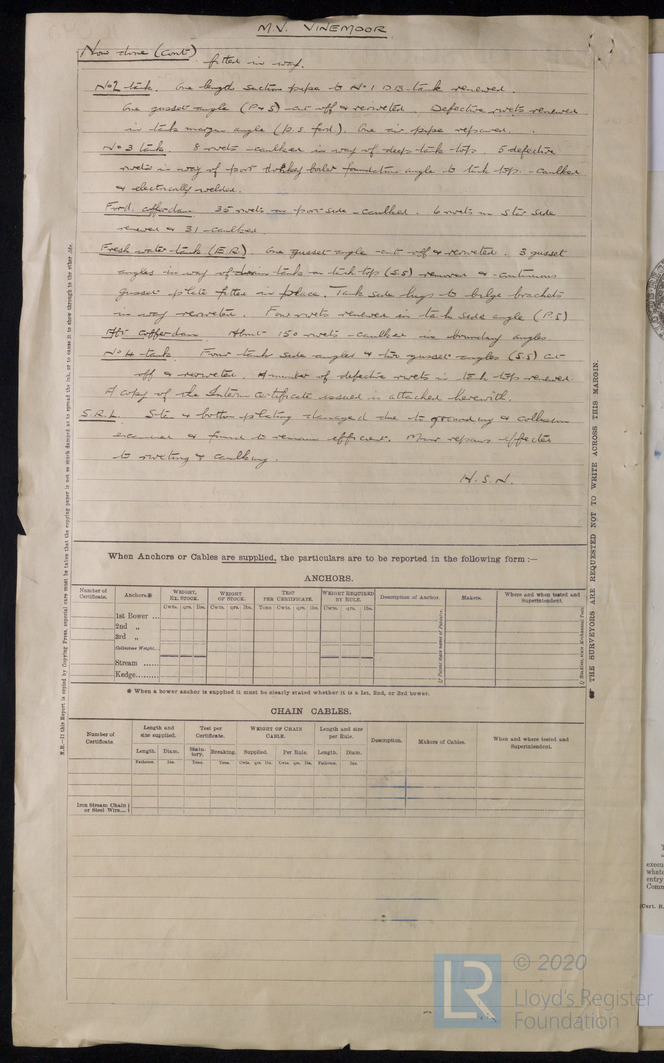 M.V. VINEMOOR
Now done (Cont) fitted in way.
No 2 tank. One length suction pipe to No 1 D.B. tank renewed.
One gusset angle (P & S) cut off & reriveted. Defective rivets renewed
in tank margin angle (P.S. ford). One air pipe repaired.
No 3 tank. 8 rivets caulked in way of deep tank top. 5 defective
rivets in way of port donkey boiler foundation angle to tank top caulked
& electrically welded.
Ford. cofferdam 35 rivets on port side caulked. 6 rivets on Star side
renewed & 31 caulked
Fresh water tank (E.R). One gusset angle cut off & reriveted. 3 gusset
angles in way of drain tank on tank top (S.S) removed & continuous
gusset plate fitted in place. Tank side lugs to bilge brackets
in way reriveted. Four rivets renewed in tank side angle (P.S)
Aft Cofferdam. About 150 rivets caulked in boundary angles
No 4 tank. Four tank side angles & two gusset angles (S.S) cut
off & reriveted. A number of defective rivets in tank top renewed.
A copy of the Interim Certificate issued is attached herewith.
S.R.L. Side & bottom plating damaged due to grounding & collision
examined & found to remain efficient. Minor repairs effected
to riveting & caulking.
H.S.N.
When Anchors or Cables are supplied, the particulars are to be reported in the following form :—
ANCHORS.
Number of Certificate.
Anchors.*
WEIGHT, EX. STOCK.
WEIGHT OF STOCK.
TEST PER CERTIFICATE.
WEIGHT REQUIRED BY RULE.
Description of Anchor.
Makers.
Where and when tested and Superintendent.
Cwts. qrs. lbs. Cwts. qrs. lbs. Tons Cwts. qrs. lbs. Cwts. qrs. lbs.
1st Bower ...
2nd „
3rd „
Collective Weight...
Stream ......
Kedge........
* When a bower anchor is supplied it must be clearly stated whether it is a 1st, 2nd, or 3rd bower.
CHAIN CABLES.
Number of Certificate.
Length and size supplied.
Test per Certificate.
WEIGHT OF CHAIN CABLE.
Length and size per Rule.
Description.
Makers of Cables.
When and where tested and Superintendent.
Length. Diam. Statutory. Breaking. Supplied. Per Rule. Length. Diam.
Fathoms. Ins. Tons. Tons. Cwts. qrs. lbs. Cwts. qrs. lbs. Fathoms. Ins.
Iron Stream Chain or Steel Wire...
THE SURVEYORS ARE REQUESTED NOT TO WRITE ACROSS THIS MARGIN.
LR
© 2020
Lloyd's Register
Foundation